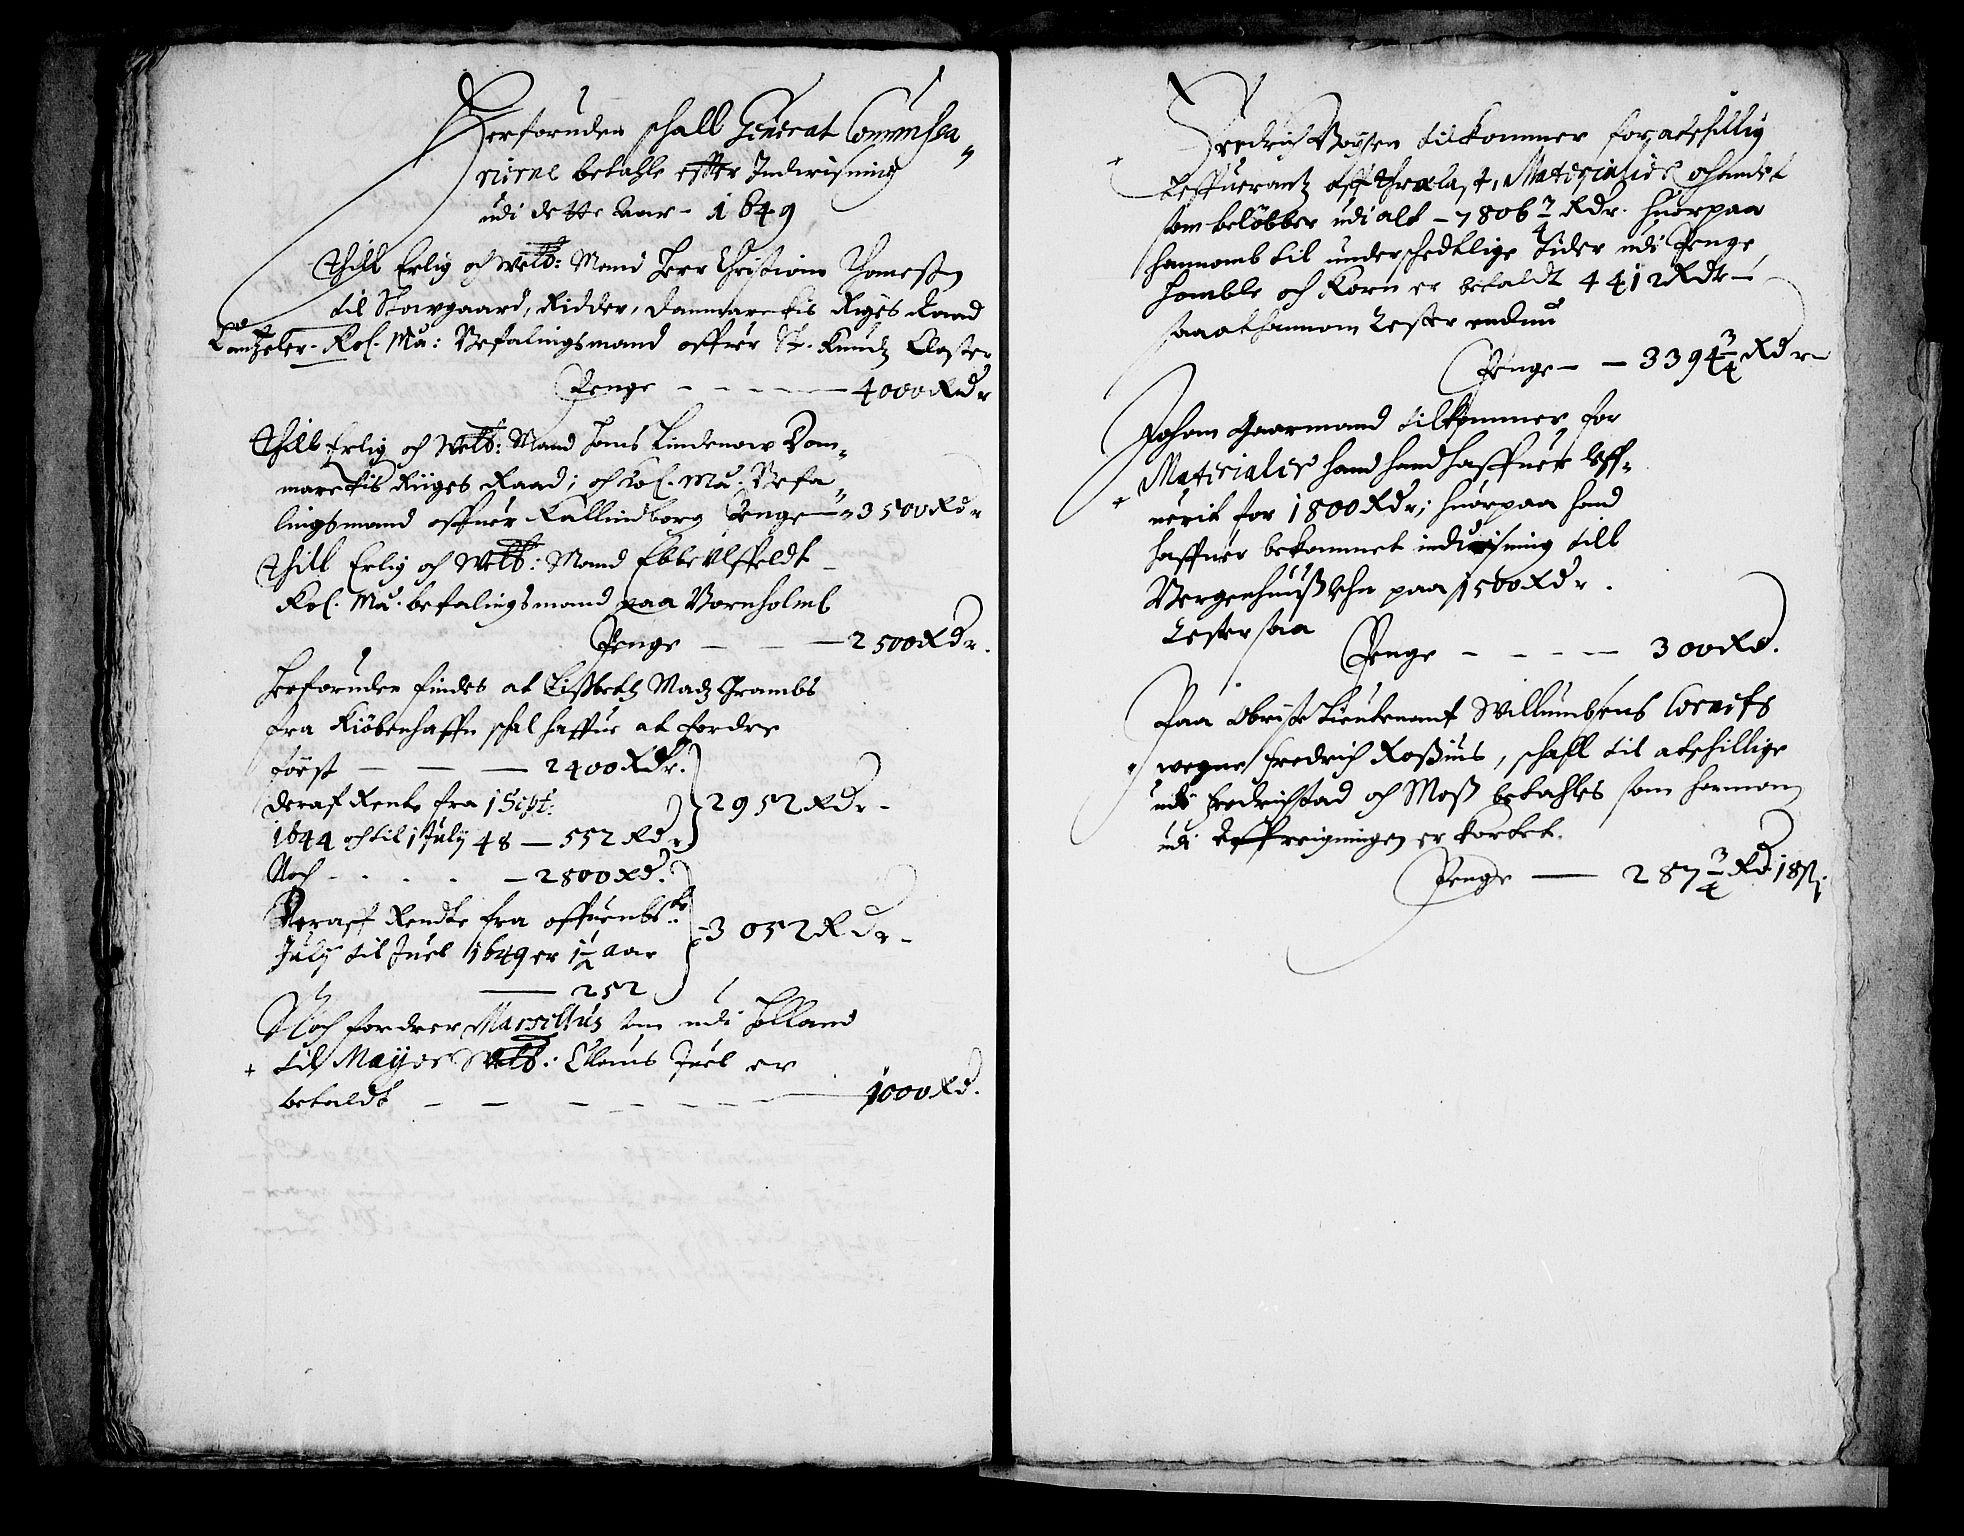 Herforuden schall General Commissa„
rierne betahle effter Indvisning
udi dette Aar - 1649
Thill Erlig och Welb: Mand Herr Christian Thomeßen
til Stougaard, Ridder, Danmarckis Rigis Raad
Cantzeler. Kol. Ma: Befalingsmand offuer St. Knudtz Closter
Penge - - - - - 4000 Rdr
Thill Erlig och Welb: Mand Hans Lindenow Dan„
marckis Riiges Raad; och Kol. Ma. Befa„
lingsmand offuer Kallundborg Penge - 3500 Rdr
Thill Erlig och Welb: Mand Ebbe Ulffeldt
Kol. Ma. befalingsmand paa Bornholmb
Penge - - - 2500 Rdr.
Herforuden findes at Lißbeth Madz Grambs
fra Kiöbenhaffn schal haffue at fordre
först - - - 2400 Rdr.
deraf Rente fra 1 Sept:
1644 och til 1 July 48 - 552 Rdr
2952 Rdr -
Noch - - - - 2800 Rd.
Deraff Rendte fra offuenbte
July til Juel 1649 er 1½ Aar
- 252
3052 Rdr -
Noch fordrer Marsellius som udi Holland
+ til Mayor Welb: Claus Juel er
betaldt - - - - - - 1000 Rd.
Fredrich Boysen tilkommer for atschillig
Leffuerantz aff Materialier och andet
som belöbber udi alt - 7806¾ Rdr. huorpaa
hannomb til underschedtlige Tider udi Penge,
Homble och Korn er betaldt 4412 Rdr -
saa at hannom Rester endnu
Penge - - 3394¾ Rdr -
Johan Gaarmand tilkommer for
+ Materialier hand haffuer leff„
uerit for 1800 Rdr; huorpaa hand
haffuer bekommet indvisning till
Bergenhuuß Lehn paa 1500 Rdr.
Rester saa
Penge - - - - 300 Rd.
Paa Obriste Lieutenant Willumbsens
wegne Fredrich Roßius, schall til atschillige
udi Fredrichstad och Moß betahles som hannom
udi Affreigningen er kortet.
Penge - 287¾ Rd 18 ß